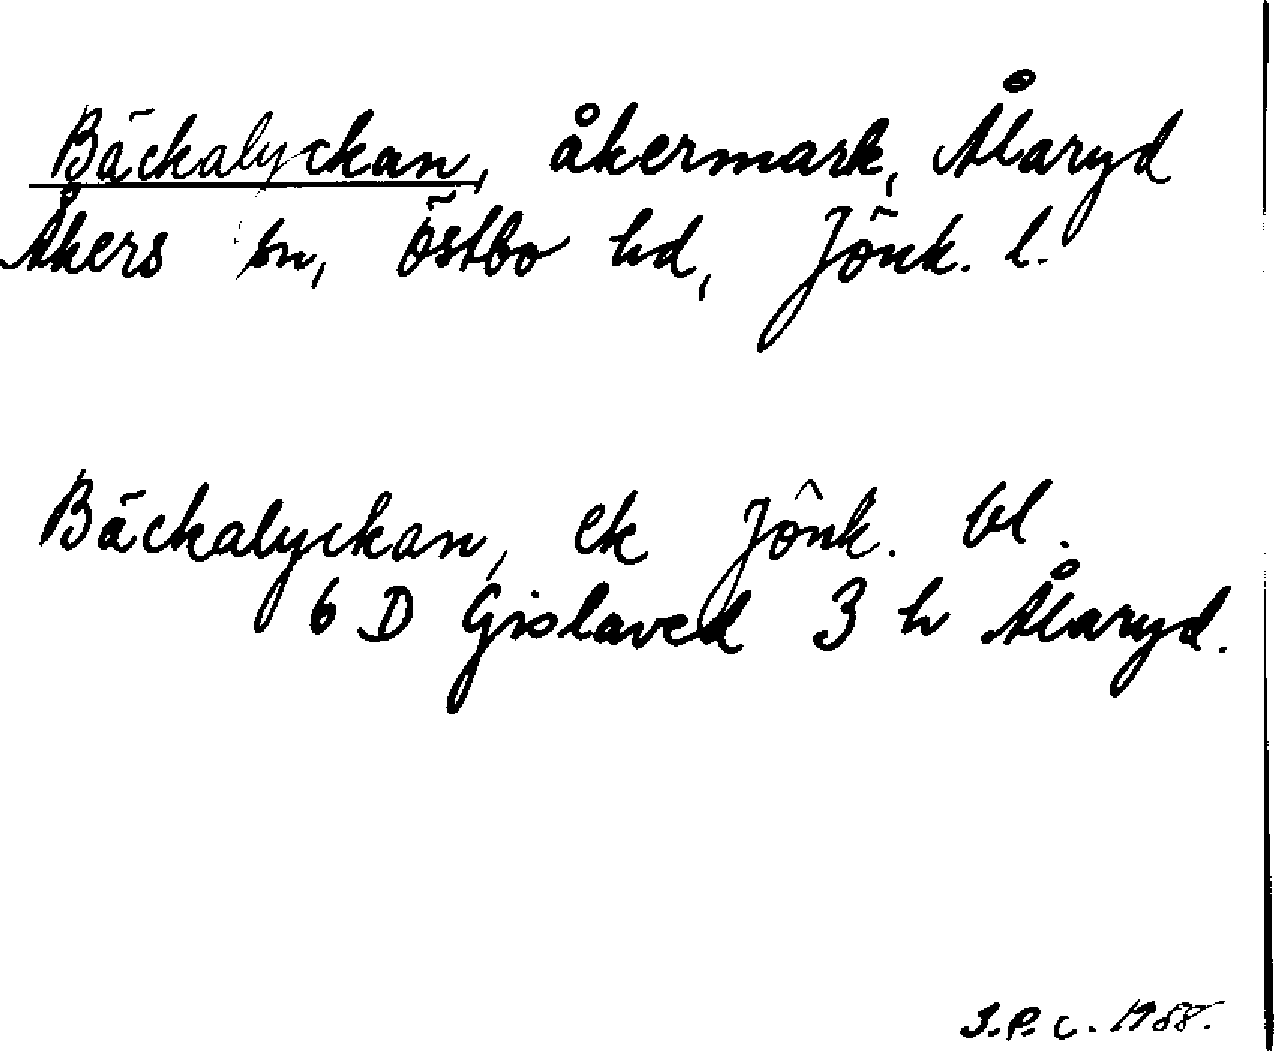 Bäckalyckan, åkermark, Ålaryd
Åkers sn, Östbo hd, Jönk. l.
Bäckalyckan, ek Jönk. bl.
6 D Gislaved 3 h Ålaryd.
J.P.C. 1958.